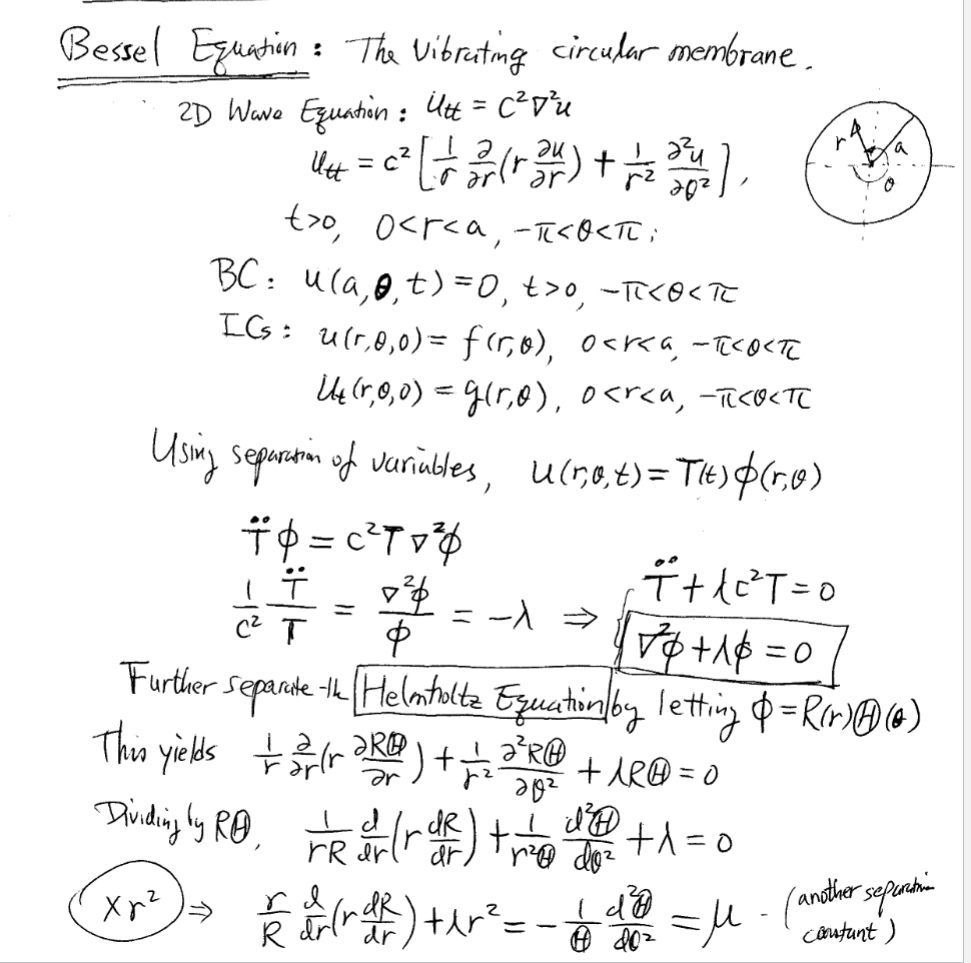 Bessel Equation: The Vibrating circular membrane.
2D Wave Equation: u_tt = c²∇²u
u_tt = c² [ 1/r ∂/∂r (r ∂u/∂r) + 1/r² ∂²u/∂θ² ],
r a θ
t>0, 0<r<a, -π<θ<π;
BC: u(a,θ,t) = 0, t>0, -π<θ<π
ICs: u(r,θ,0) = f(r,θ), 0<r<a, -π<θ<π
u_t(r,θ,0) = g(r,θ), 0<r<a, -π<θ<π
Using separation of variables, u(r,θ,t) = T(t)ϕ(r,θ)
T̈ϕ = c²T∇²ϕ
1/c² T̈/T = ∇²ϕ/ϕ = -λ ⇒ { T̈ + λc²T = 0
∇²ϕ + λϕ = 0
Further separate the Helmholtz Equation by letting ϕ = R(r)Θ(θ)
This yields 1/r ∂/∂r (r ∂RΘ/∂r) + 1/r² ∂²RΘ/∂θ² + λRΘ = 0
Dividing by RΘ, 1/(rR) d/dr (r dR/dr) + 1/(r²Θ) d²Θ/dθ² + λ = 0
×r² ⇒ r/R d/dr (r dR/dr) + λr² = - 1/Θ d²Θ/dθ² = μ - (another separation constant)